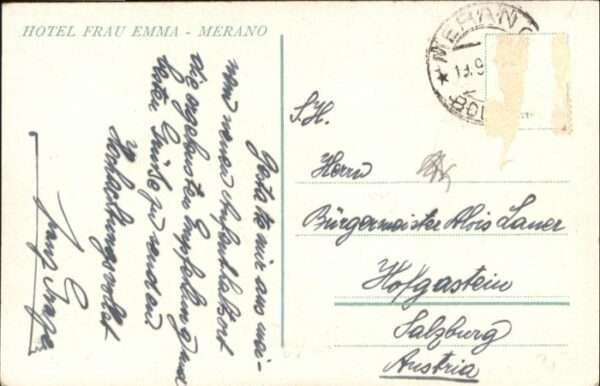 HOTEL FRAU EMMA - MERANO
Gestatte mir aus mei-
nem neuen Aufenthaltsort
die ergebensten Empfehlung und
besten Grüße zu senden
Hochachtungsvollst
MERANO
13.9
BOL
S.H.
Herrn
Bürgermeister Alois Lauer
Hofgastein
Salzburg
Austria